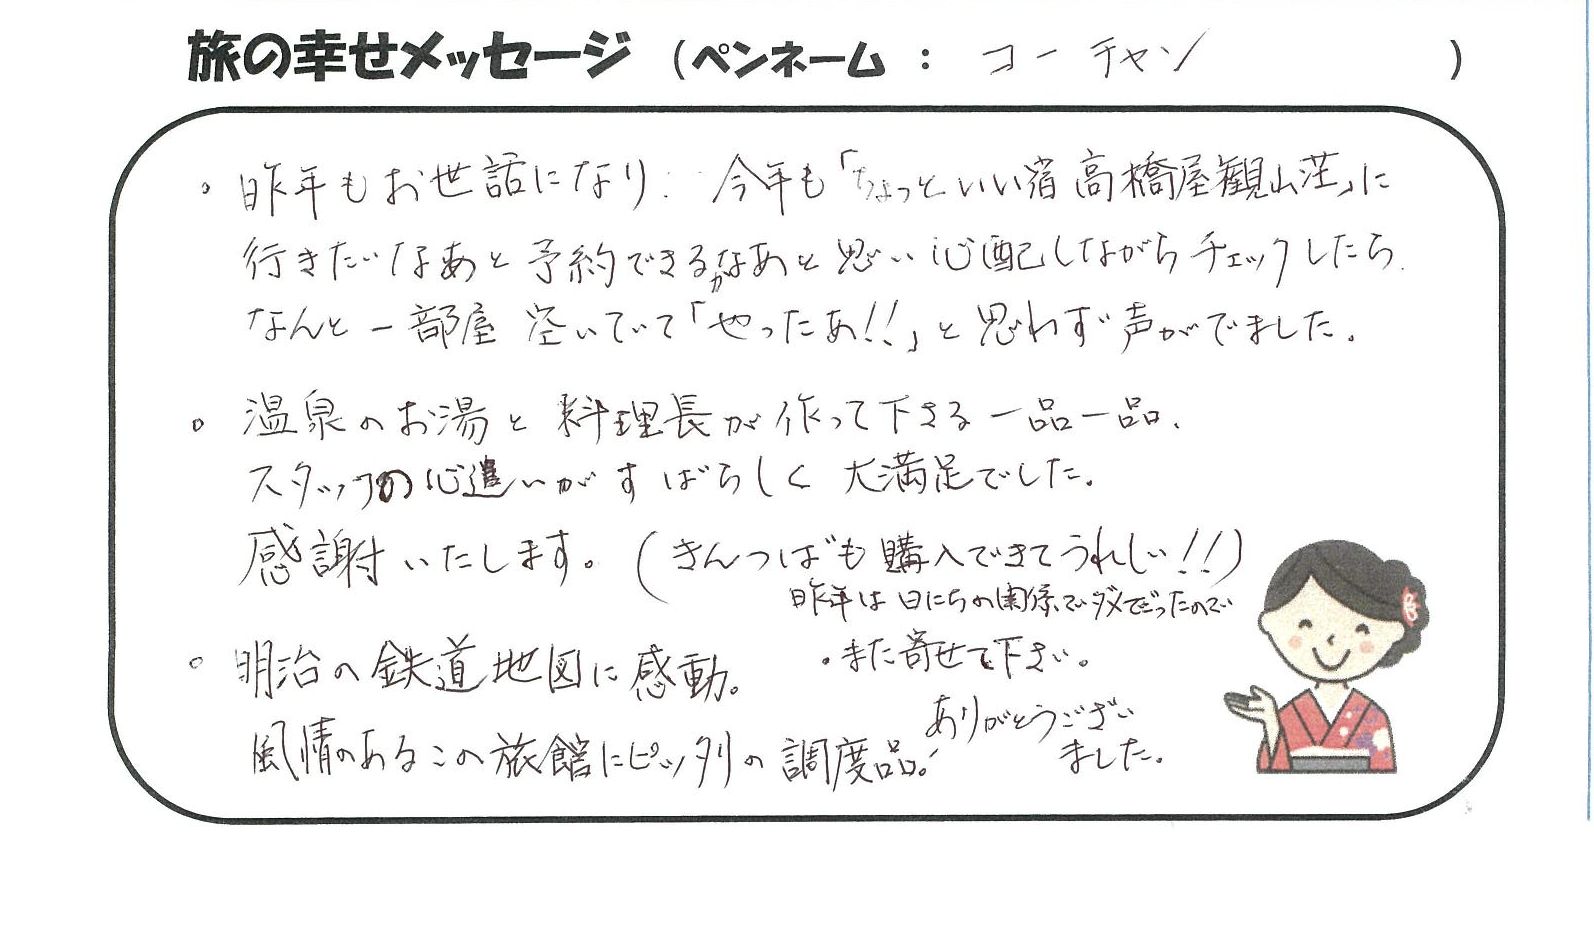 旅の幸せメッセージ （ペンネーム ： コーチャン ）
・昨年もお世話になり、今年も「ちょっといい宿 高橋屋観山荘」に
行きたいなあと予約できるかなあと思い心配しながらチェックしたら
なんと一部屋空いていて「やったあ!!」と思わず声がでました。
。温泉のお湯と料理長が作って下さる一品一品、
スタッフの心遣いがすばらしく大満足でした。
感謝いたします。（きんつばも購入できてうれしい!!）
昨年は日にちの関係でダメでだったので
。明治の鉄道地図に感動。
風情のあるこの旅館にピッタリの調度品。
・また寄せて下さい。
ありがとうござい
ました。